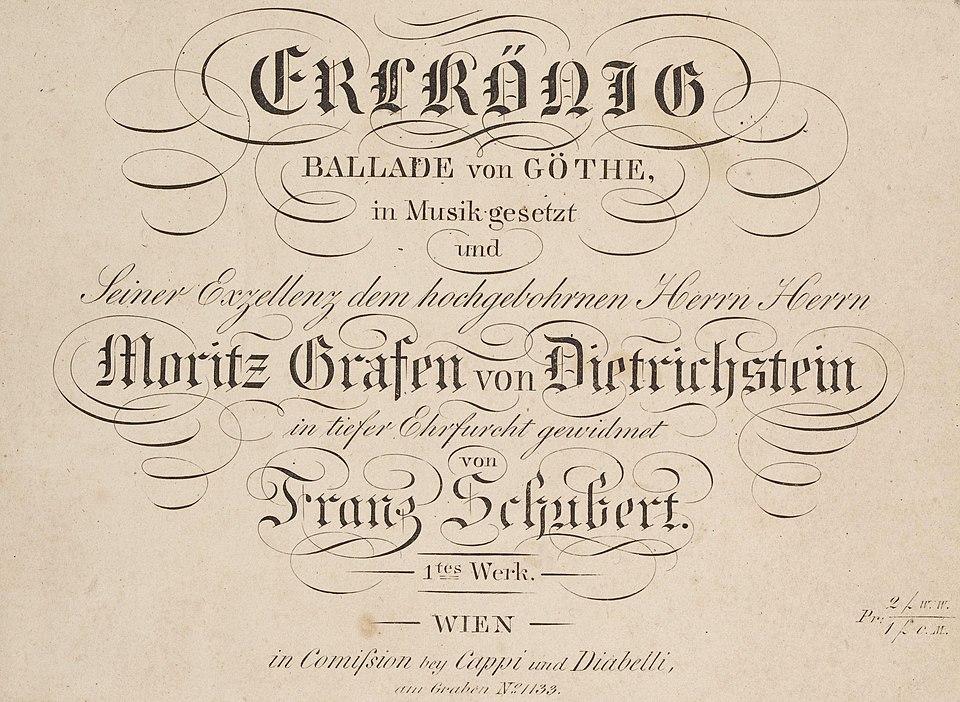 ERLKÖNIG
BALLADE von GÖTHE,
in Musik gesetzt
und
Seiner Exzellenz dem hochgebohrnen Herrn Herrn
Moritz Grafen von Dietrichstein
in tiefer Ehrfurcht gewidmet
von
Franz Schubert.
1tes Werk.
WIEN
Pr: 2 f W. W.
1 f C. M.
in Comiſsion bey Cappi und Diabelli,
am Graben No. 1133.